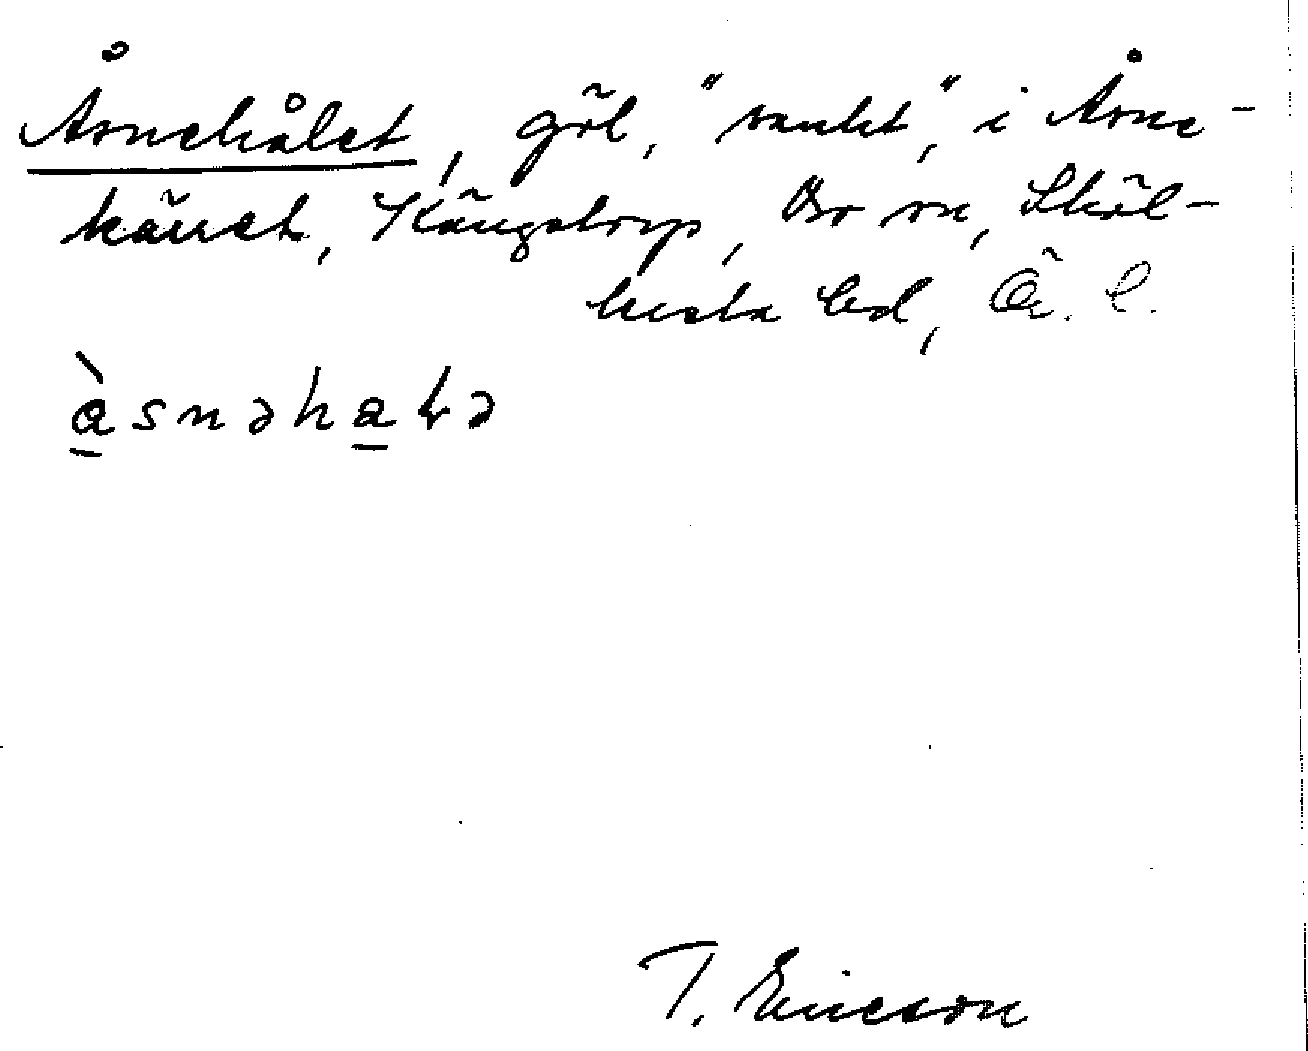 Åsnehålet, göl, "sankt", i Åsne-
kärret, Kängstorp, Bo sn, Sköl-
lersta hd, Ör. l.
à̱snəha̱ɫə
T. Ericson